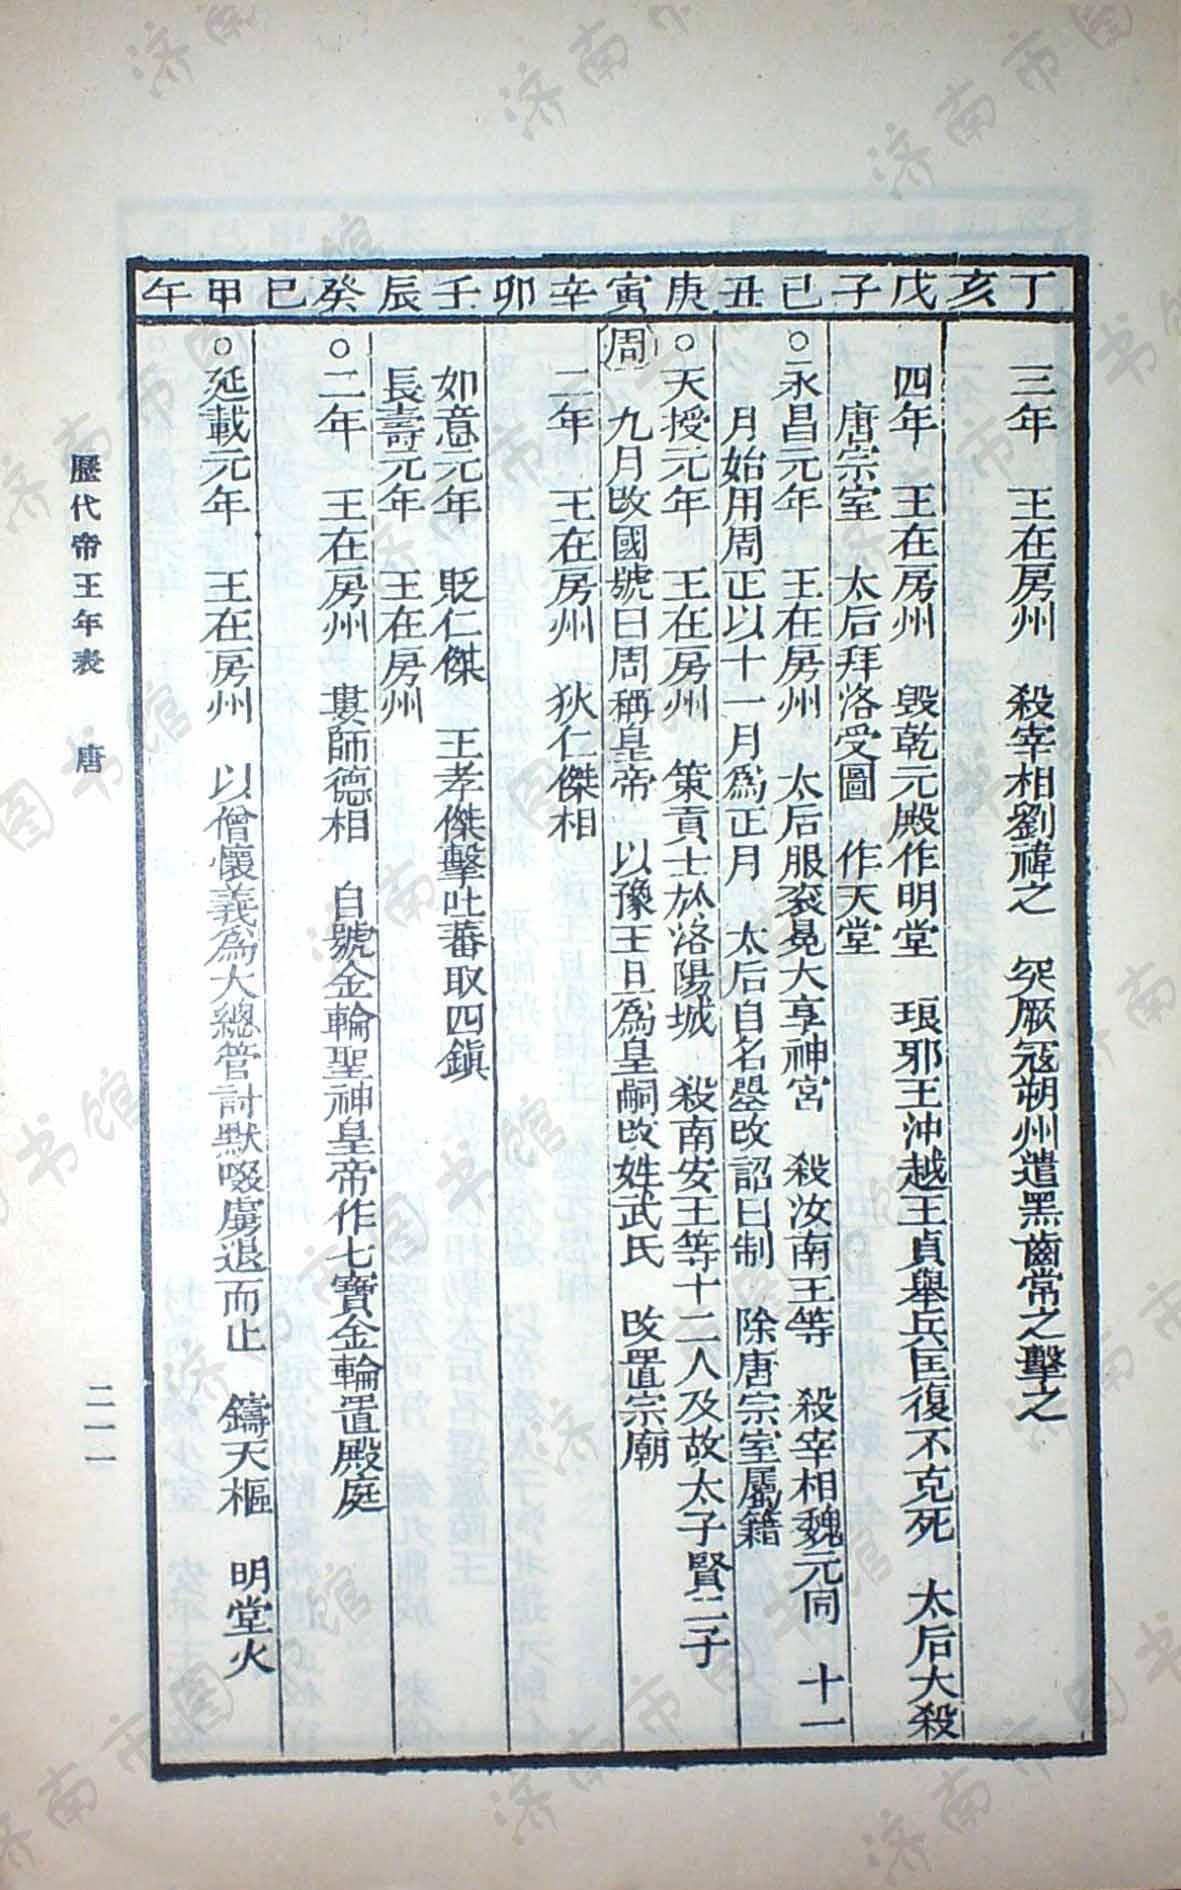 丁亥戊子己丑庚寅辛卯壬辰癸巳甲午
三年　王在房州　殺宰相劉禕之　突厥寇朔州遣黑齒常之擊之
四年　王在房州　毀乾元殿作明堂　琅邪王沖越王貞舉兵匡復不克死　太后大殺
唐宗室　太后拜洛受圖　作天堂
○永昌元年　王在房州　太后服袞冕大享神宮　殺汝南王等　殺宰相魏元同　十一
月始用周正以十一月爲正月　太后自名曌改詔曰制　除唐宗室屬籍
○天授元年　王在房州　策貢士於洛陽城　殺南安王等十二人及故太子賢二子
周　九月改國號曰周稱皇帝　以豫王旦爲皇嗣改姓武氏　改置宗廟
二年　王在房州　狄仁傑相
如意元年　貶仁傑　王孝傑擊吐蕃取四鎮
長壽元年　王在房州
○二年　王在房州　婁師德相　自號金輪聖神皇帝作七寶金輪置殿庭
○延載元年　王在房州　以僧懷義爲大總管討默啜虜退而止　鑄天樞　明堂火
歷代帝王年表　唐
二一一
济南市图书馆